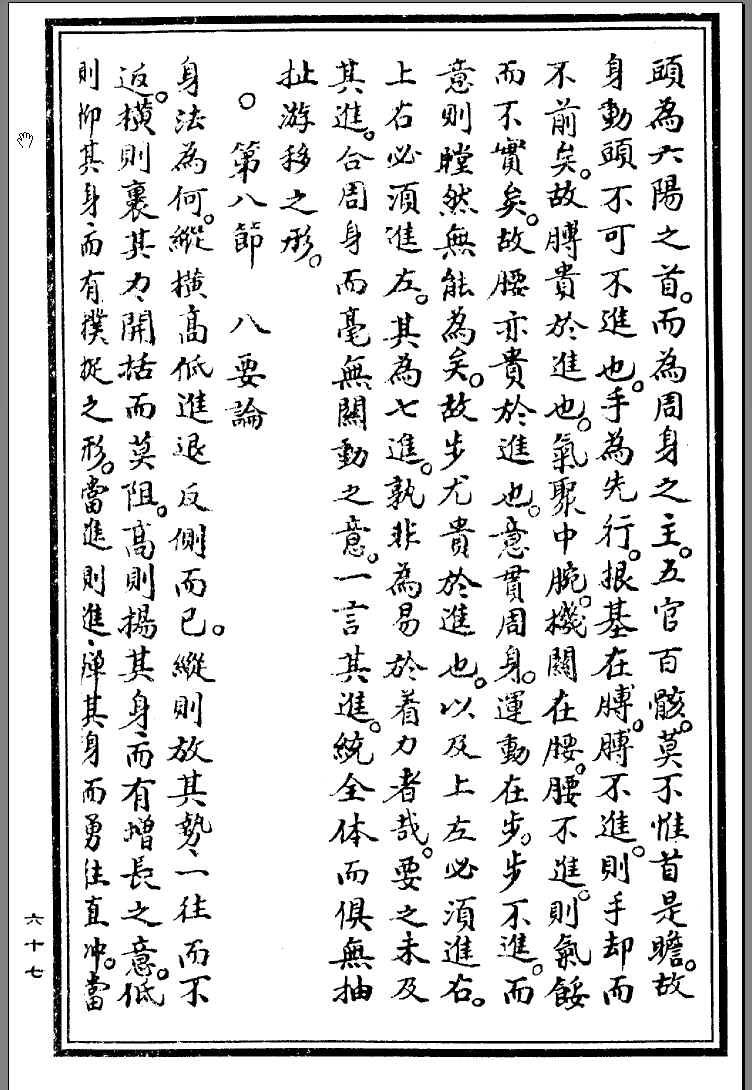 頭為六陽之首。而為周身之主。五官百骸。莫不惟首是瞻。故
身動頭不可不進也。手為先行。根基在膊。膊不進。則手却而
不前矣。故膊貴於進也。氣聚中腕。機關在腰。腰不進。則氣餒
而不實矣。故腰亦貴於進也。意貫周身。運動在步。步不進。而
意則瞠然無能為矣。故步尤貴於進也。以及上左必須進右。
上右必須進左。其為七進。孰非為易於着力者哉。要之未及
其進。合周身而毫無關動之意。一言其進。統全体而俱無抽
扯游移之形。
。第八節　八要論
身法為何。縱橫高低進退反側而已。縱則放其勢、一往而不
返。橫則裹其力、開括而莫阻。高則揚其身、而有增長之意。低
則抑其身、而有撲捉之形。當進則進、殫其身而勇往直冲。當
六十七